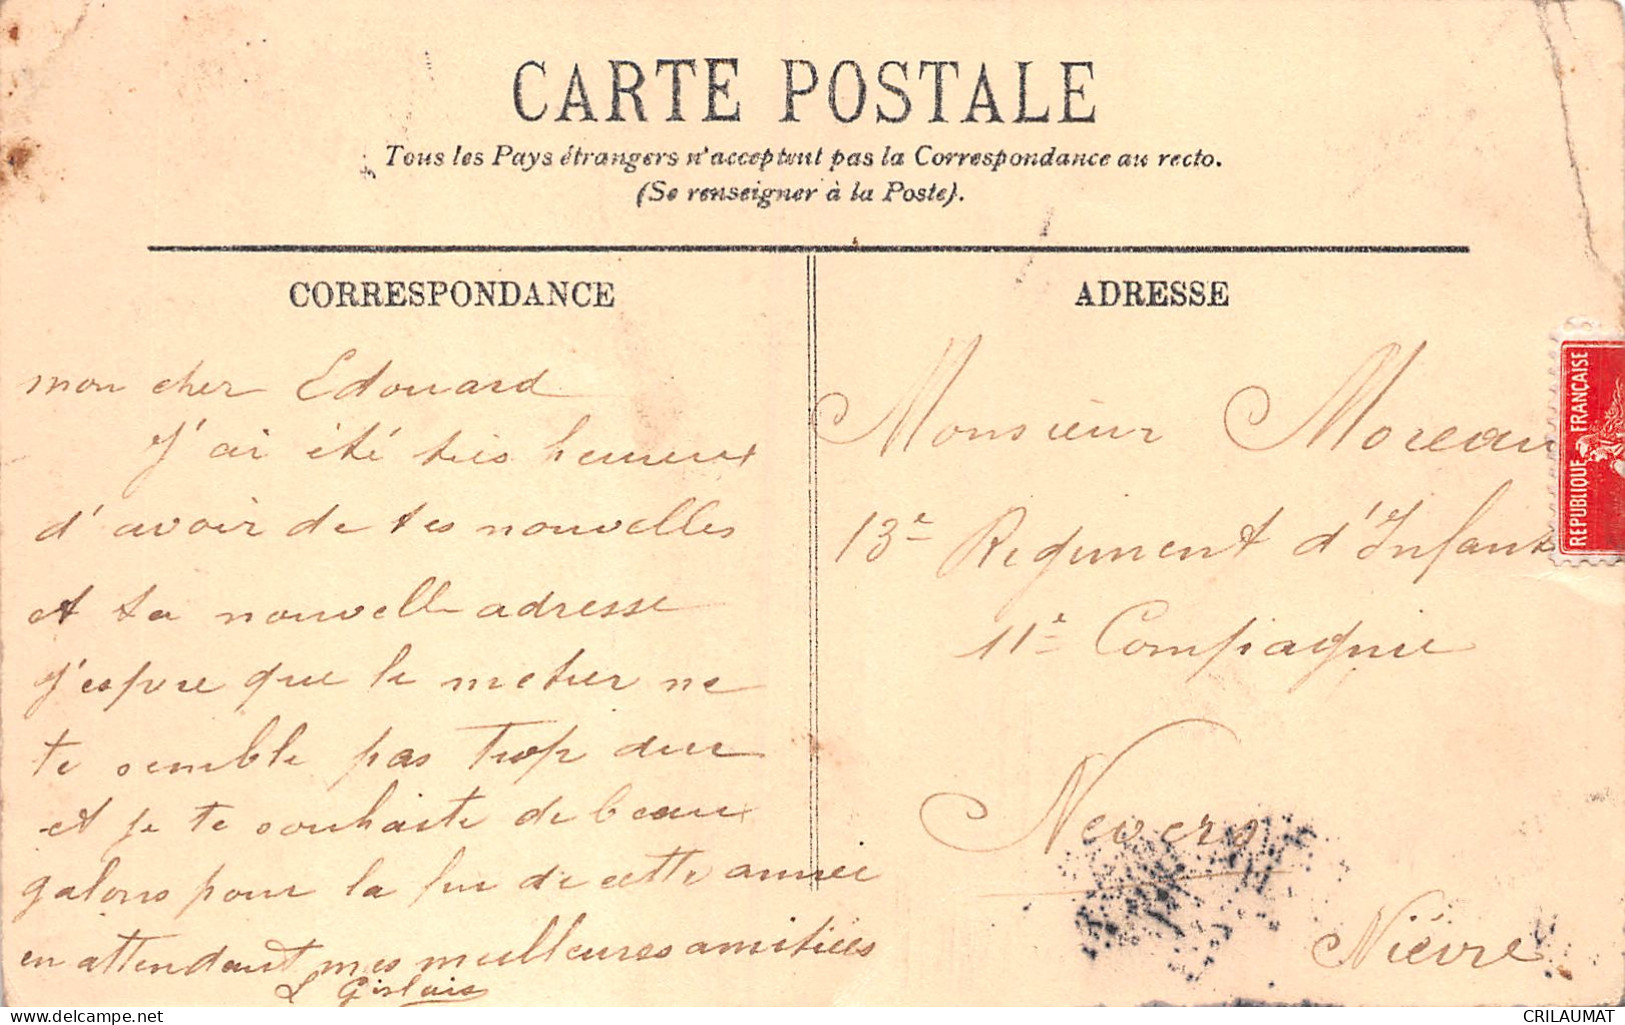 CARTE POSTALE
Tous les Pays étrangers n'acceptent pas la Correspondance au recto.
(Se renseigner à la Poste).
CORRESPONDANCE
mon cher Edouard
J'ai été très heureux
d'avoir de tes nouvelles
et ta nouvelle adresse
J'espere que le metier ne
te semble pas trop dur
et je te souhaite de beaux
galons pour la fin de cette année
en attendant mes meilleures amitiées
L Gislais
ADRESSE
Monsieur Moreau
13e Regiment d'Infant
11e Compagnie
Nevers
Nièvre
REPUBLIQUE FRANÇAISE
delcampe.net
CRILAUMAT